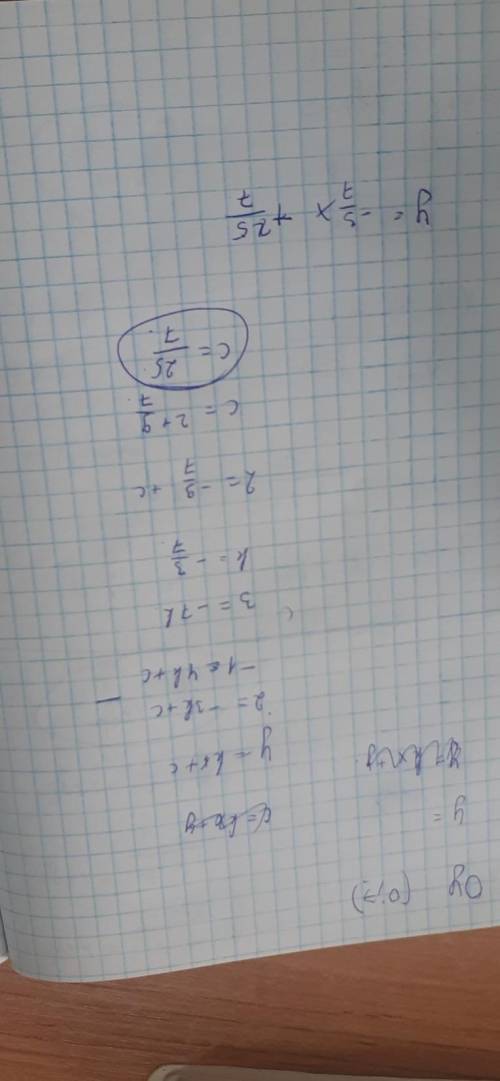 Oy (0;?)
y =
y = kx+c
2 = -3k+c
-1 = 4k+c
3 = -7k
k = -3/7
2 = -9/7 + c
c = 2+9/7
c = 25/7
y = -3/7 x + 25/7